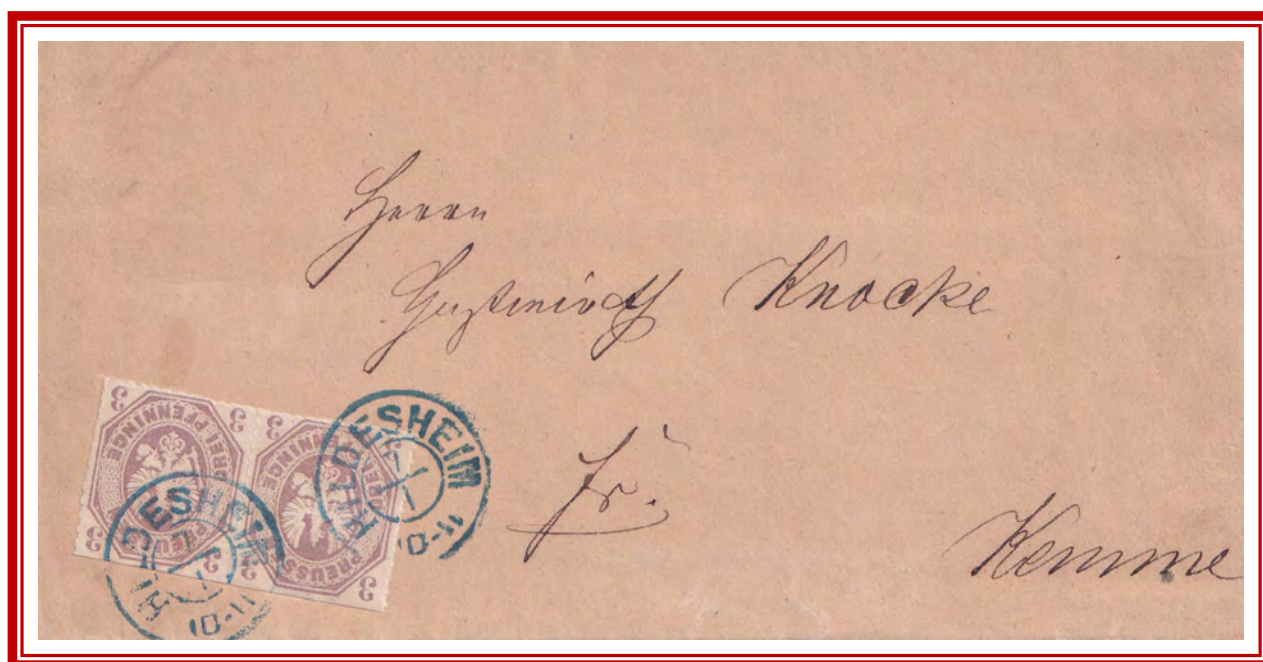 Herrn
Gastwirth Knocke
fr.
Kemme
3 3 3 3
DREI PFENNINGE
PREUSSEN
HILDESHEIM
10-11
HILDESHEIM
10-11